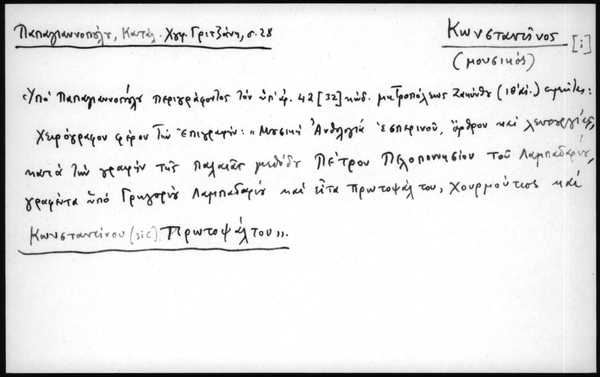 Παπαγιαννοπούλου, Κατάλ. Χγφ. Γριτζάνη, σ. 28
Κωνσταντῖνος [;]
(μουσικός)
Ὑπό Παπαγιαννοπούλου περιγράφοντος τόν ὑπ' ἀρ. 42 [32] κώδ. μητροπόλεως Ζακύνθου (18 αἰ.)
Χειρόγραφον φέρον τήν ἐπιγραφήν: «Μουσική Ἀνθολογία Ἑσπερινοῦ, ὄρθρου καί λειτουργίας,
κατά τήν γραφήν τῆς παλαιᾶς μεθόδου Πέτρου Πελοποννησίου τοῦ Λαμπαδαρίου,
γραφέντα ὑπό Γρηγορίου Λαμπαδαρίου καί εἶτα πρωτοψάλτου, Χουρμούζιος καί
Κωνσταντίνου (sic) Πρωτοψάλτου».